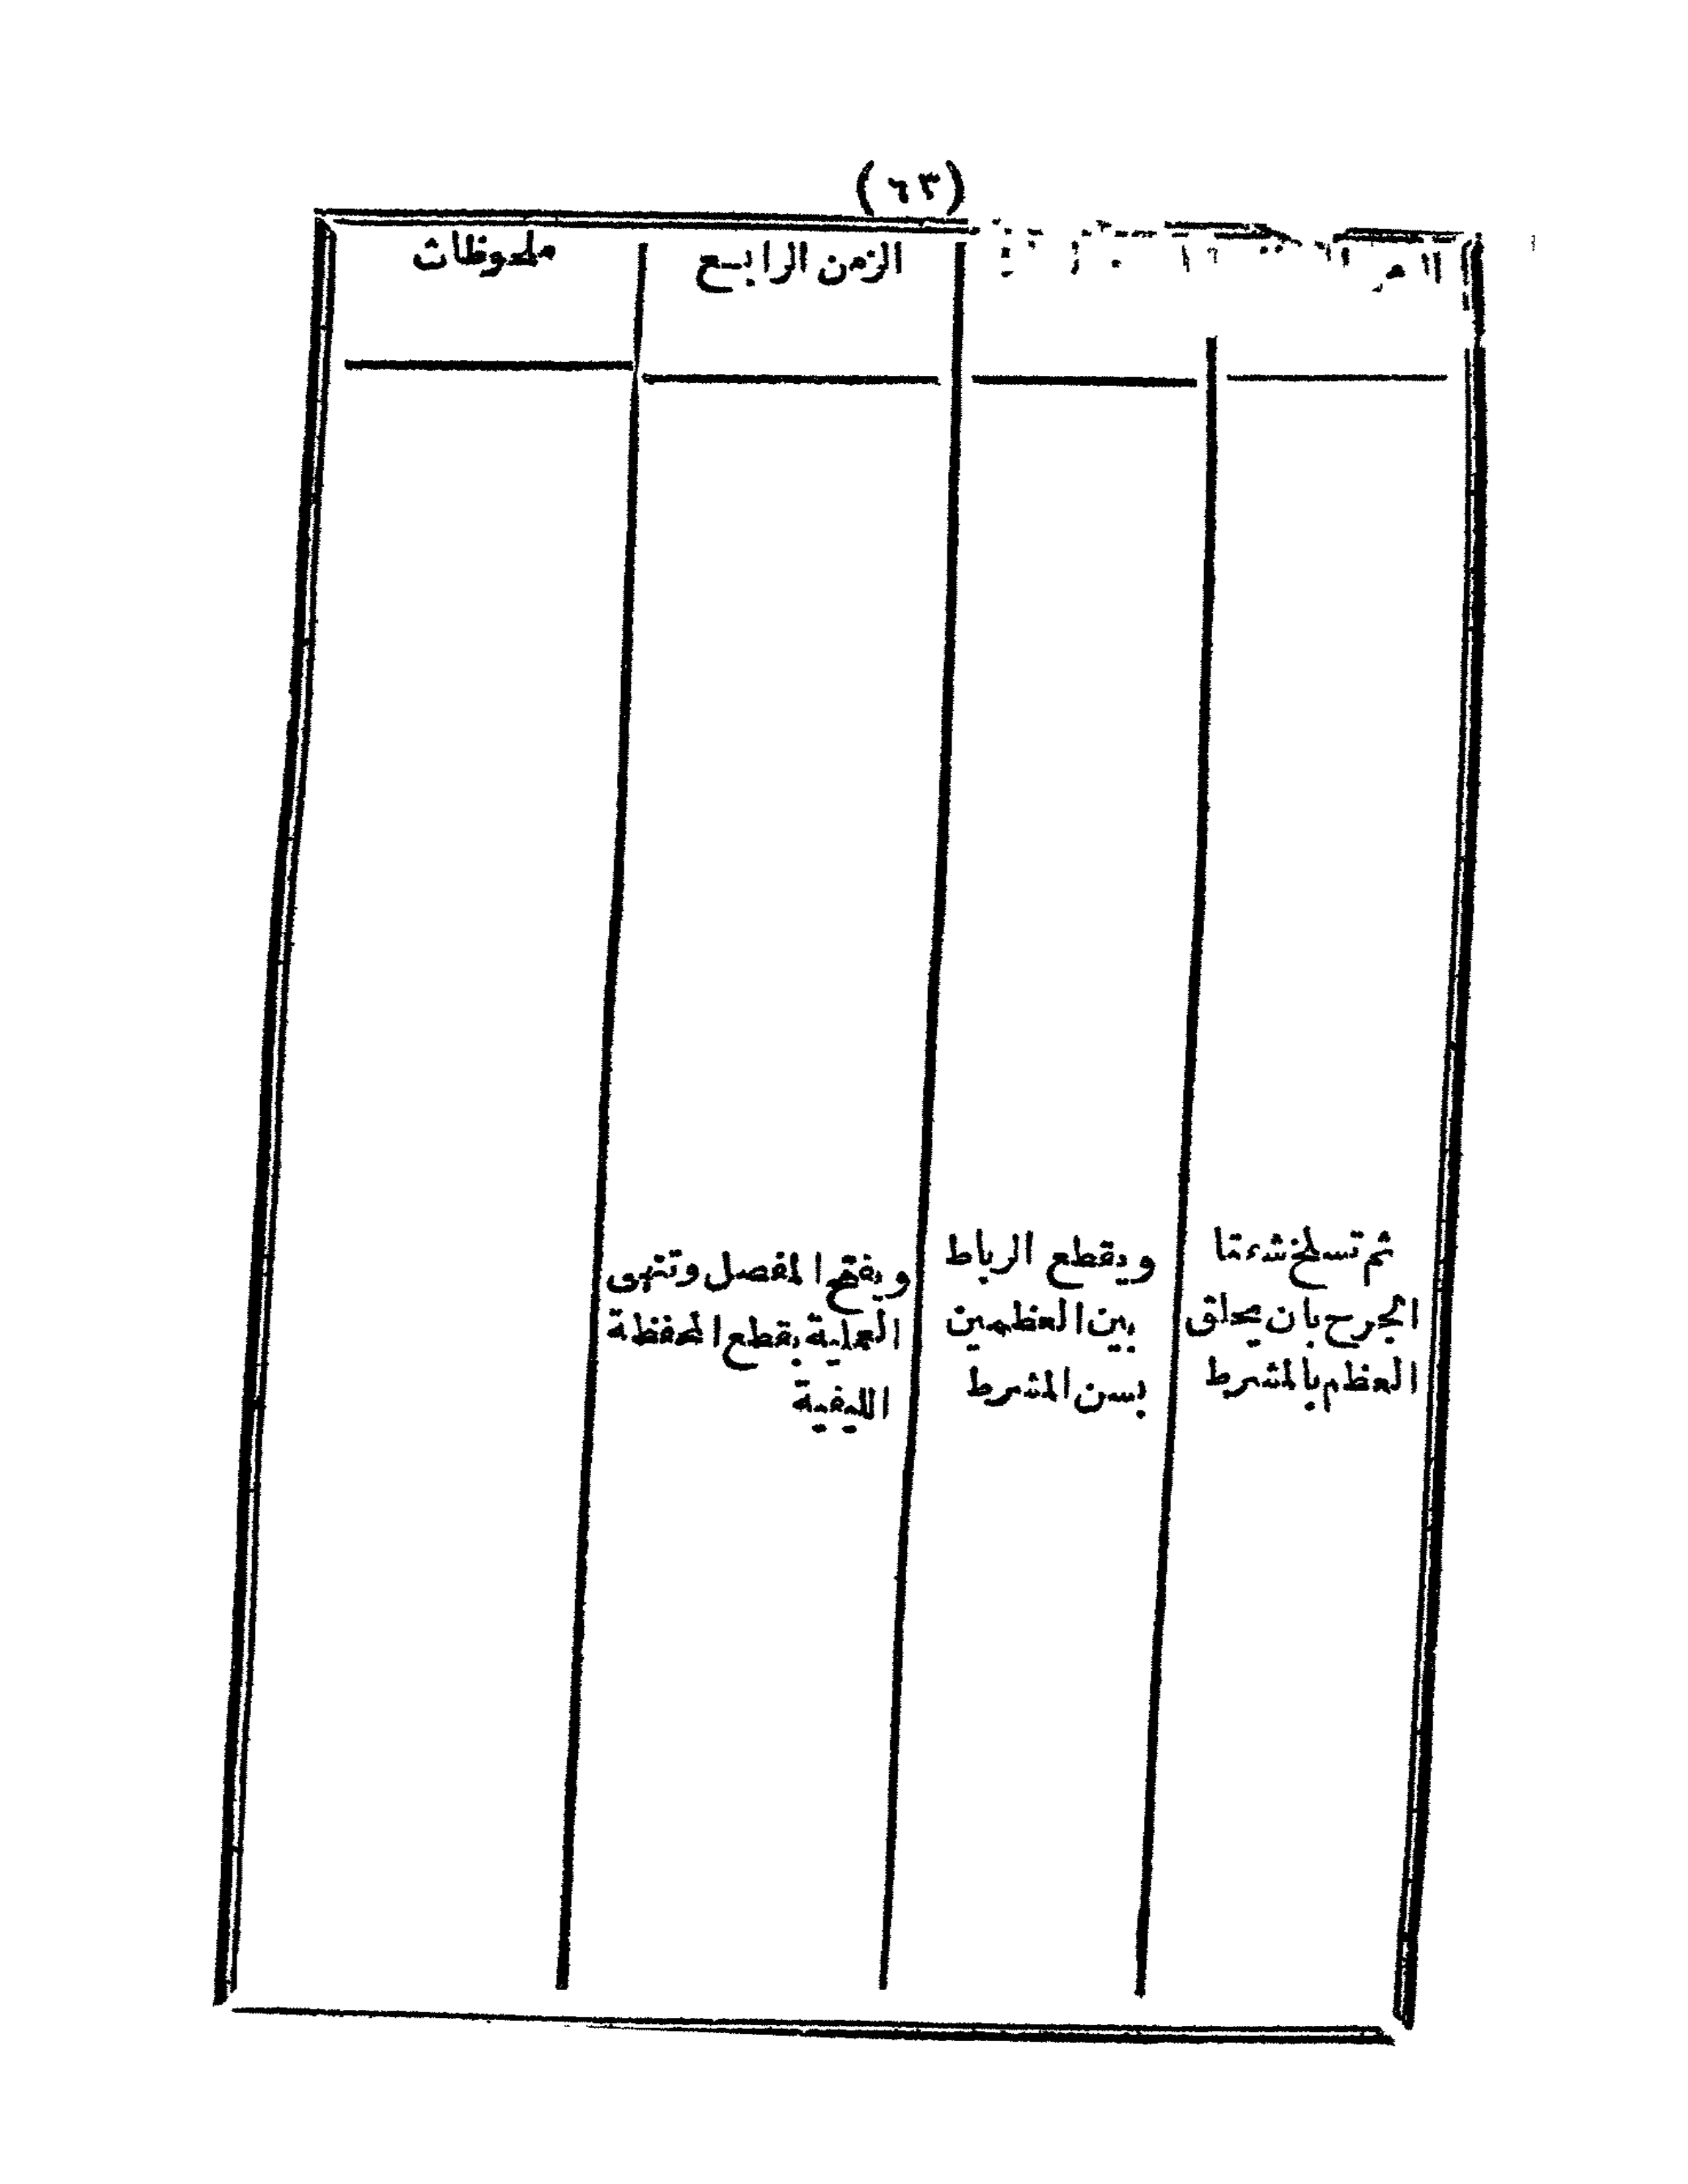 (٦٣)
الزمن الرابع
ملحوظات
ثم تسلخ شفتا
الجرح بان يحلق
العظم بالمشرط
ويقطع الرباط
بين العظمين
بسن المشرط
ويفتح المفصل وتنتهى
العملية بقطع المحفظة
الليفية